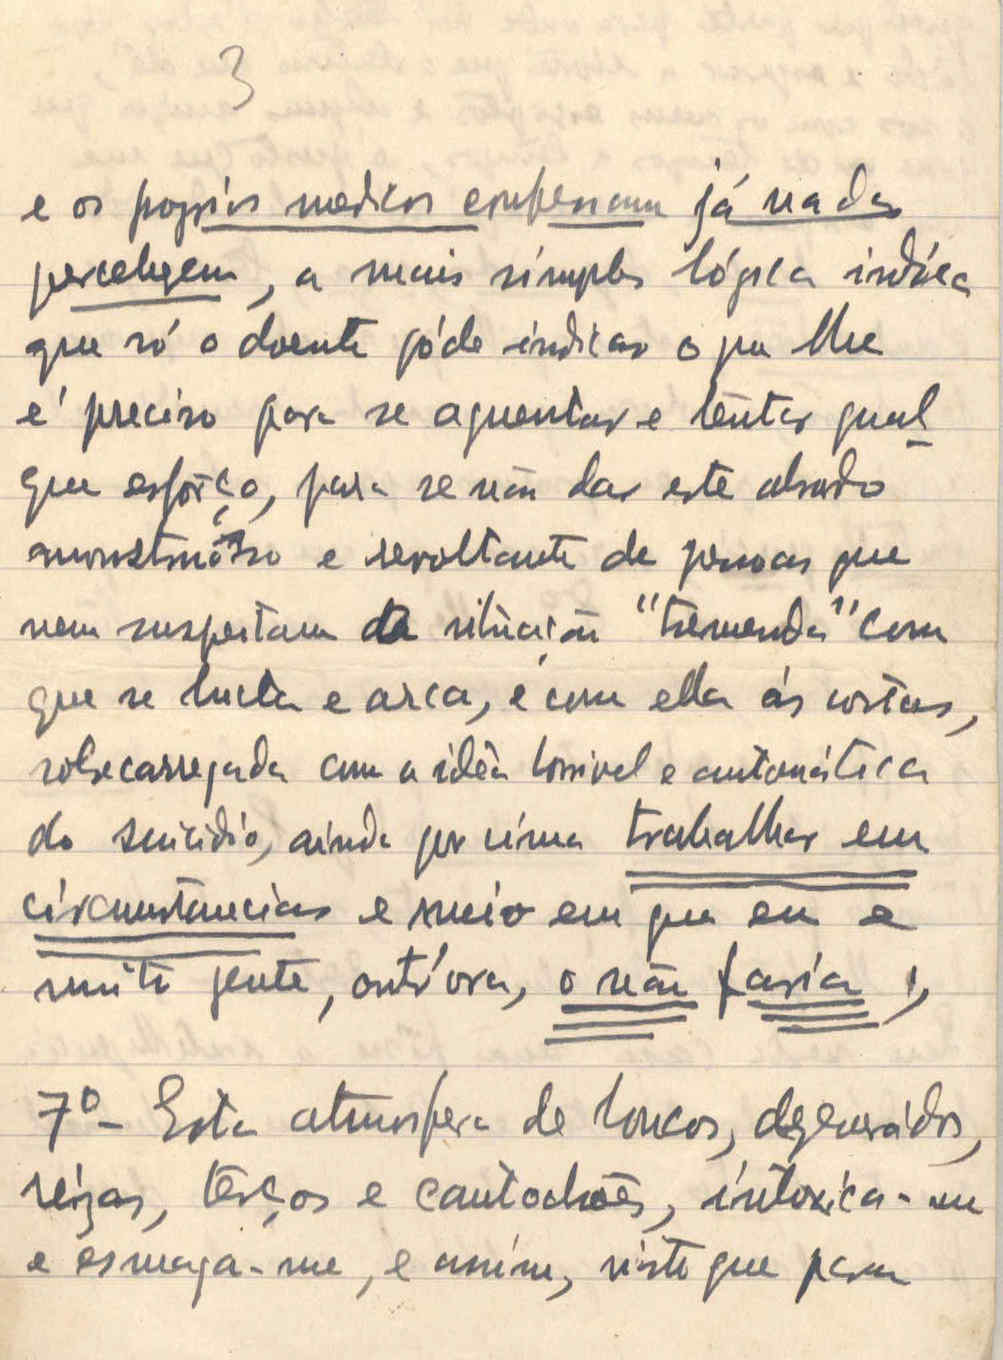 3
e os proprios medicos confessam já nada
percebem, a mais simples lógica indíca
que só o doente póde indicar o que lhe
é preciso para se aguentar e tentar qual-
quer esfôrço, para se não dar este absurdo
monstruôso e revoltante de pessoas que
nem suspeitam da situação "tremenda" com
que se lucta e arca, e com ella ás costas,
sobrecarregada com a idêa horrivel e automática
do suicidio, ainda por cima trabalhar em
circumstancias e meio em que eu e
muita gente, outr'ora, o não faria!,
7º - Esta atmosfera de loucos, degenerádos,
rêzas, terços e cantochões, intoxica-me
e esmaga-me, e assim, visto que para